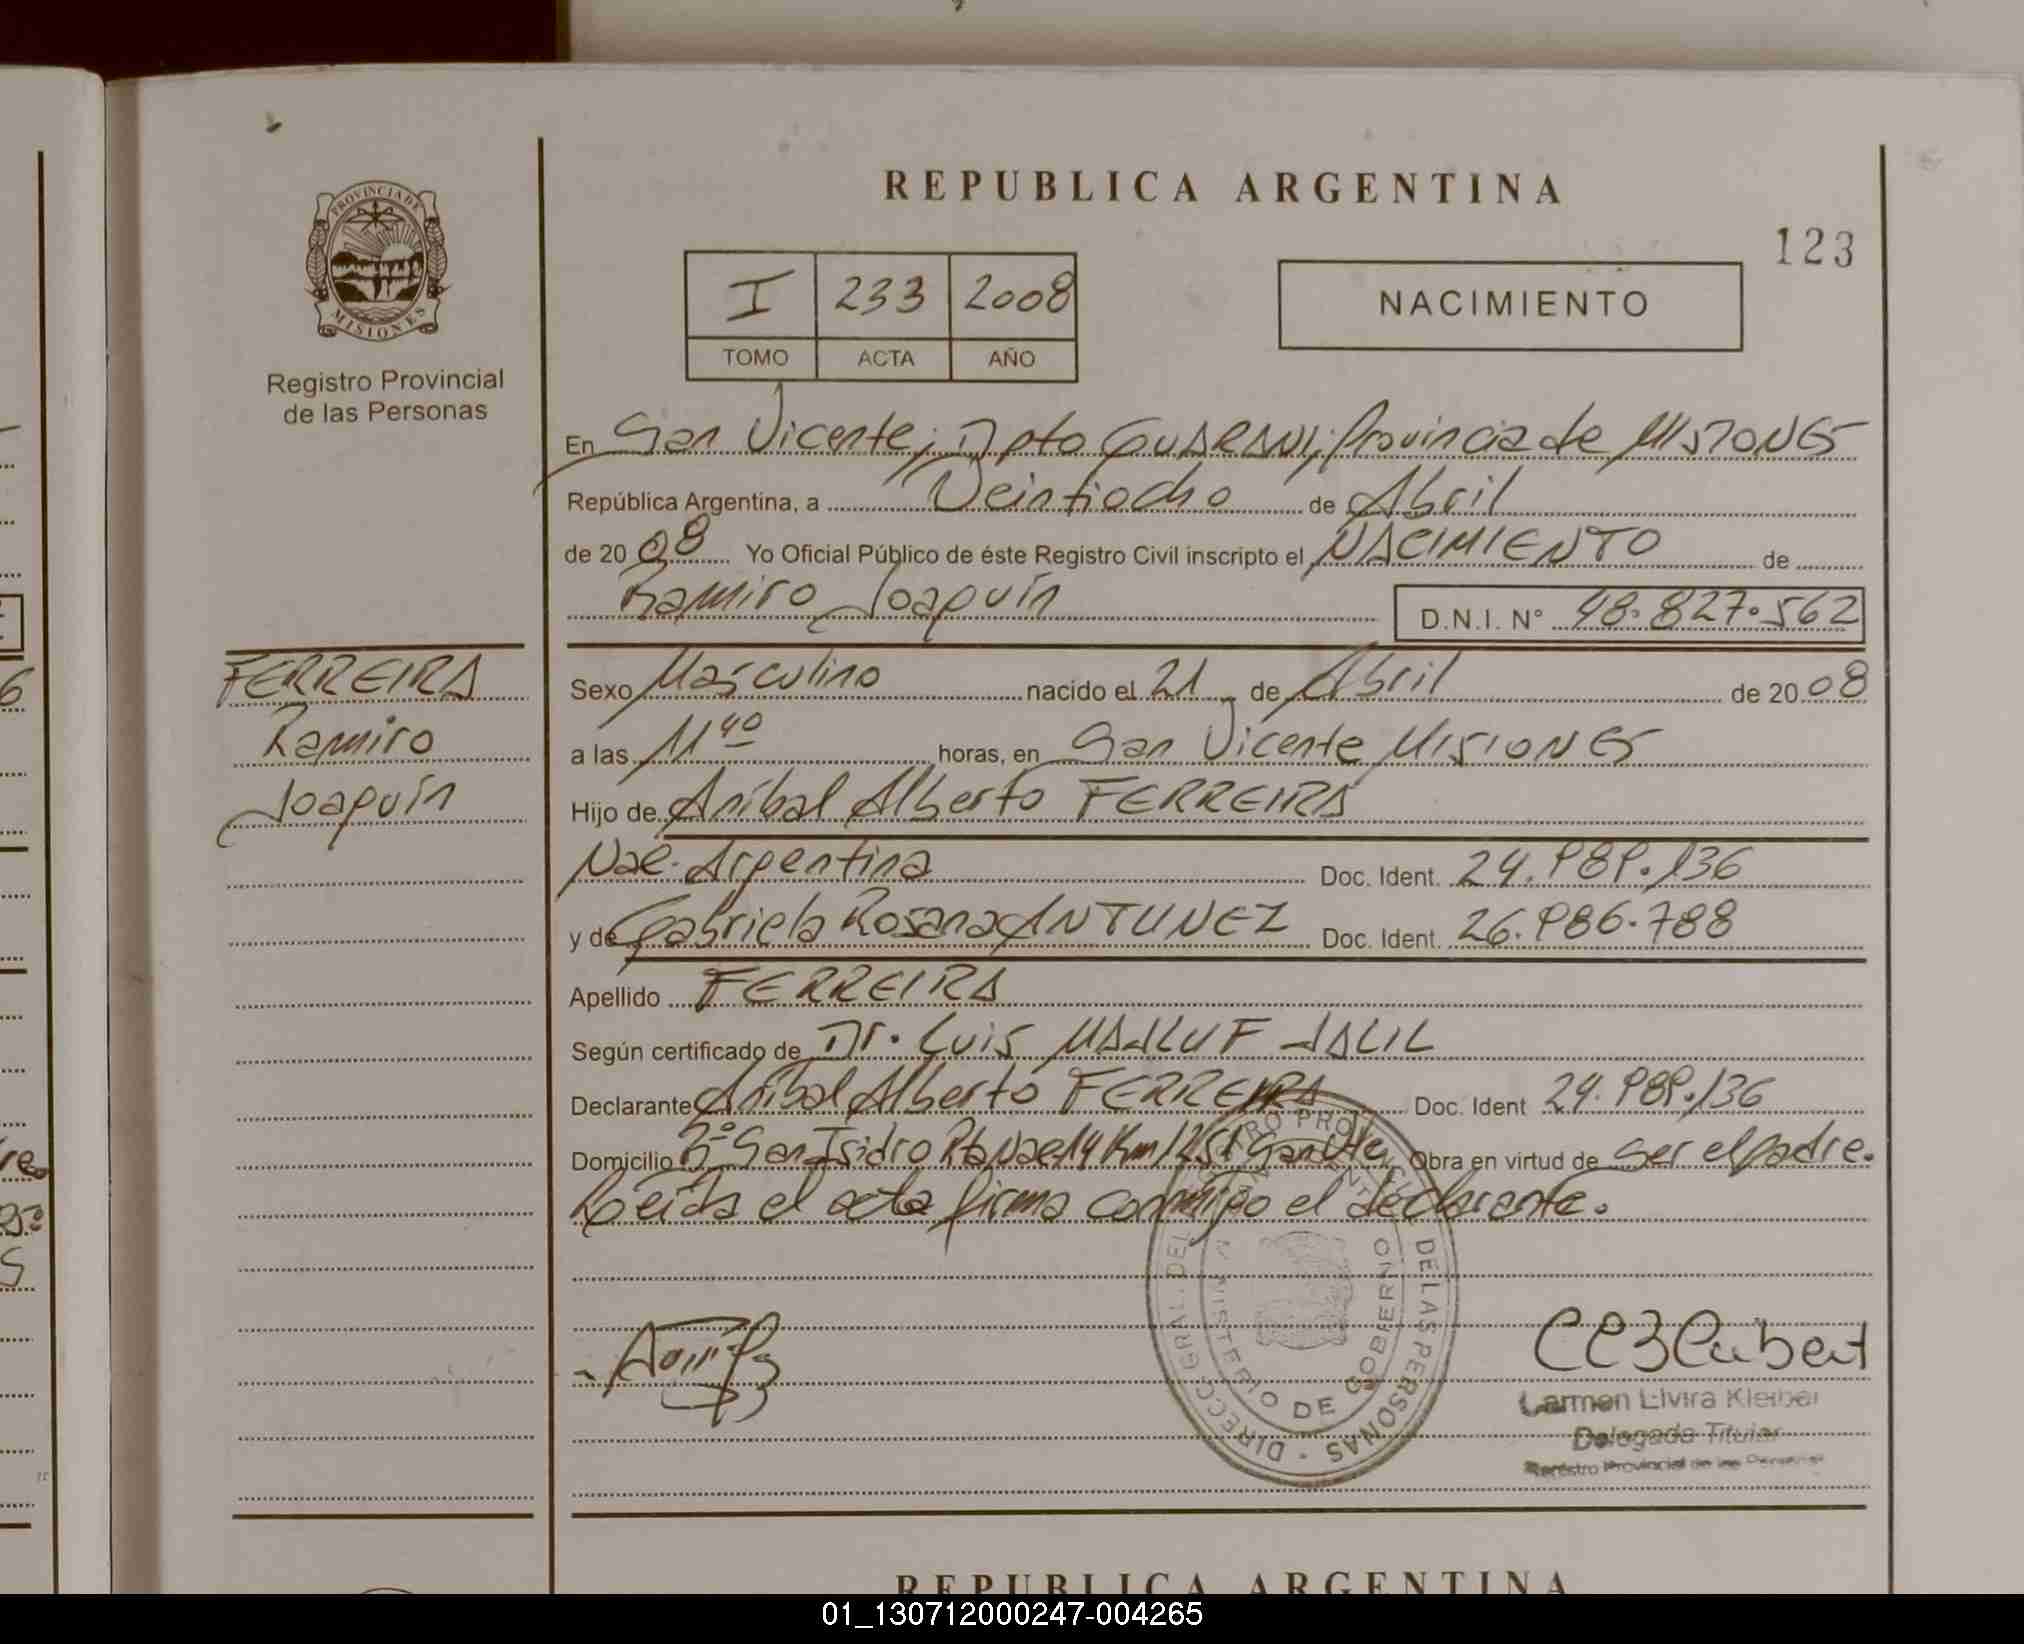 REPUBLICA ARGENTINA
123
PROVINCIA DE
MISIONES
Registro Provincial
de las Personas
I 233 2008
TOMO ACTA AÑO
NACIMIENTO
En San Vicente, Dpto GUARANI, Provincia de MISIONES
República Argentina, a Veintiocho de Abril
de 20 08 Yo Oficial Público de éste Registro Civil inscripto el NACIMIENTO de
Ramiro Joaquín D.N.I. Nº 48.827.562
FERREIRA
Ramiro
Joaquín
Sexo Masculino nacido el 21 de Abril de 20 08
a las 11 40 horas, en San Vicente MISIONES
Hijo de Anibal Alberto FERREIRA
Nac. Argentina Doc. Ident. 24.989.136
y de Gabriela Rosana ANTUNEZ Doc. Ident. 26.986.788
Apellido FERREIRA
Según certificado de Dr. Luis MALLUF JALIL
Declarante Anibal Alberto FERREIRA Doc. Ident 24.989.136
Domicilio Bº San Isidro Rta Nac 14 Km 1251 San Vte Obra en virtud de ser el padre.
Leída el acta firma conmigo el declarante.
DIRECC. GRAL. DEL REGISTRO PROVINCIAL DE LAS PERSONAS
MINISTERIO DE GOBIERNO
Carmen Elvira Kleiber
Delegada Titular
Registro Provincial de las Personas
REPUBLICA ARGENTINA
01_130712000247-004265